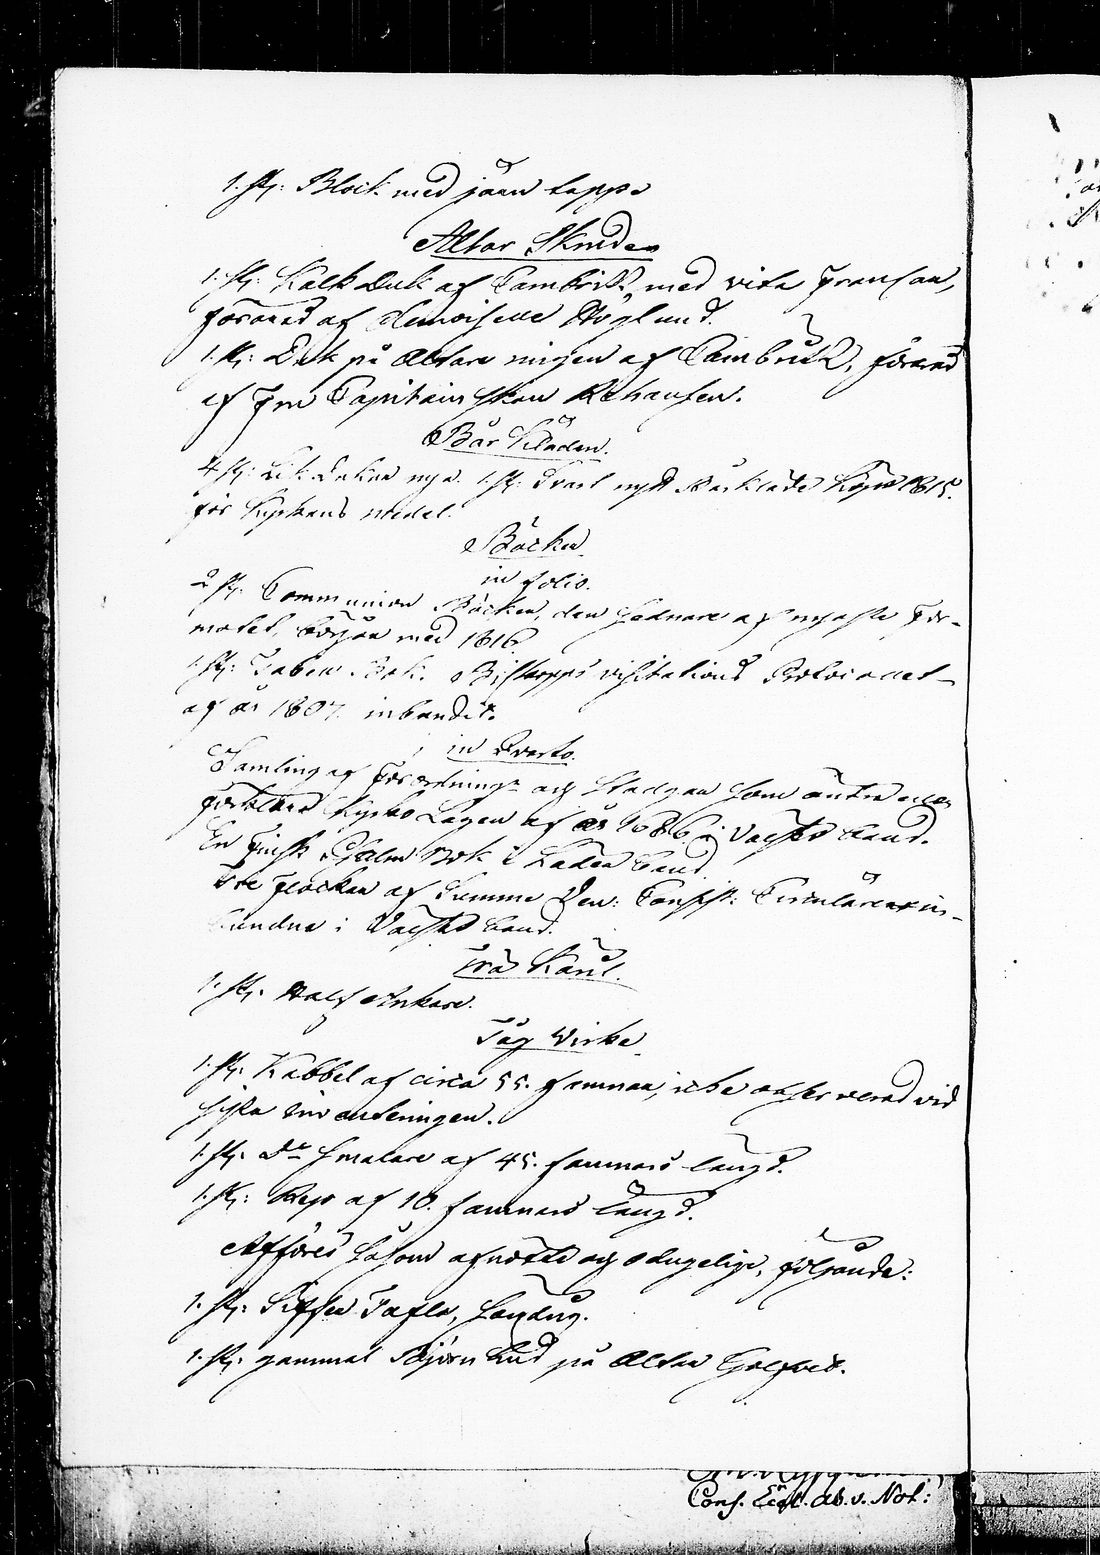 1. St: Block med järn tappe
Altar Skruder
1. St: Kalk Duk af Cambrick, med vita Fransar,
förärad af Demoiselle Höglund.
1. St: Duk på Altare ringen af Cambrick, förärad
af Fru Capitainskan Rehausen.
Bår Kläden.
4 St: Lik Laken nya. 1. St: Svart nytt Bårkläde köpt 1815.
för Kyrkans medel.
Böcker
in folio.
2 St: Communion Böcker, den sednare af nyaste For-
matet, börjar med 1816.
1. St: Tabell Bok. Biskopps visitations Protocollet
af år 1807. inbundit.
in Qvarto.
Samling af Förordningr och Stadgar som ändra eller
förklara Kyrko Lagen af år 1686 i band.
En Finsk Psalm Bok i Läder band.
Tre flockar af Summe Ven: Consist: Circulärer in-
bundna i band.
Trä Käril.
1. St: Halv Ankare.
Tåg Virke
1. St: Kabbel af circa 55. famnar, icke observerad vid
sista Inventeringen.
1. St: Do smalare af 45. famnars längd.
1. St: Rep af 10. famnars längd.
Afföres såsom afnötte och odugelige, följande:
1. St: Siffer Tafla, sönderg.
1. St: gammal Björn hud på Altar Golfvet.
Cons. Eccl. Ab. v. Not: